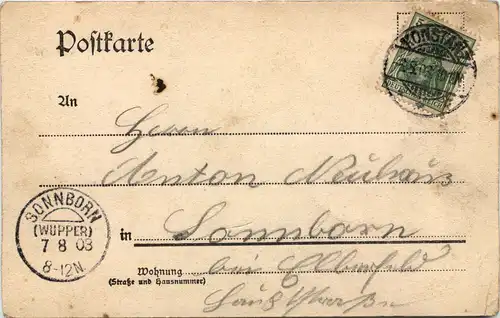 Postkarte
KONSTANZ
An
Herrn
Anton Neuhaus
SONNBORN
(WUPPER)
7 8 03
8-12N
in Sonnborn
Wohnung bei Elberfeld
(Straße und Hausnummer)